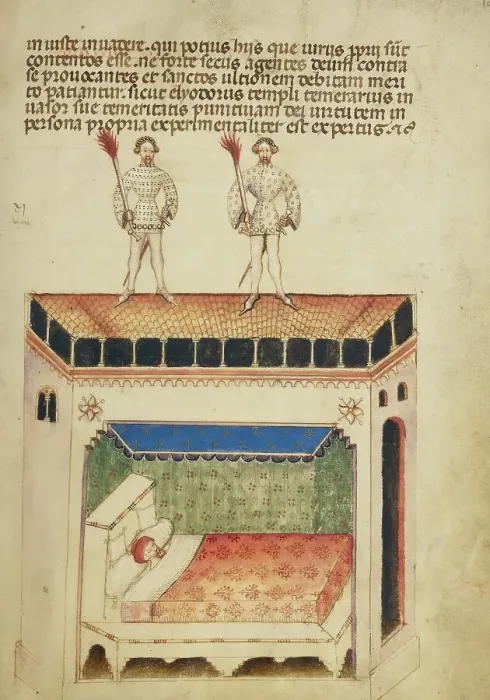 in iuste inuadere. qui potius hijs que iuris pprii sūt
contentos esse. ne forte secus agentes deum contra
se prouocantes et sanctos ultionem debitam meri
to patiantur. sicut elyodorus templi temerarius in
uasor sue temeritatis punitiuam dei uirtutem in
persona propria experimentaliter est expertus. ⁊c̄